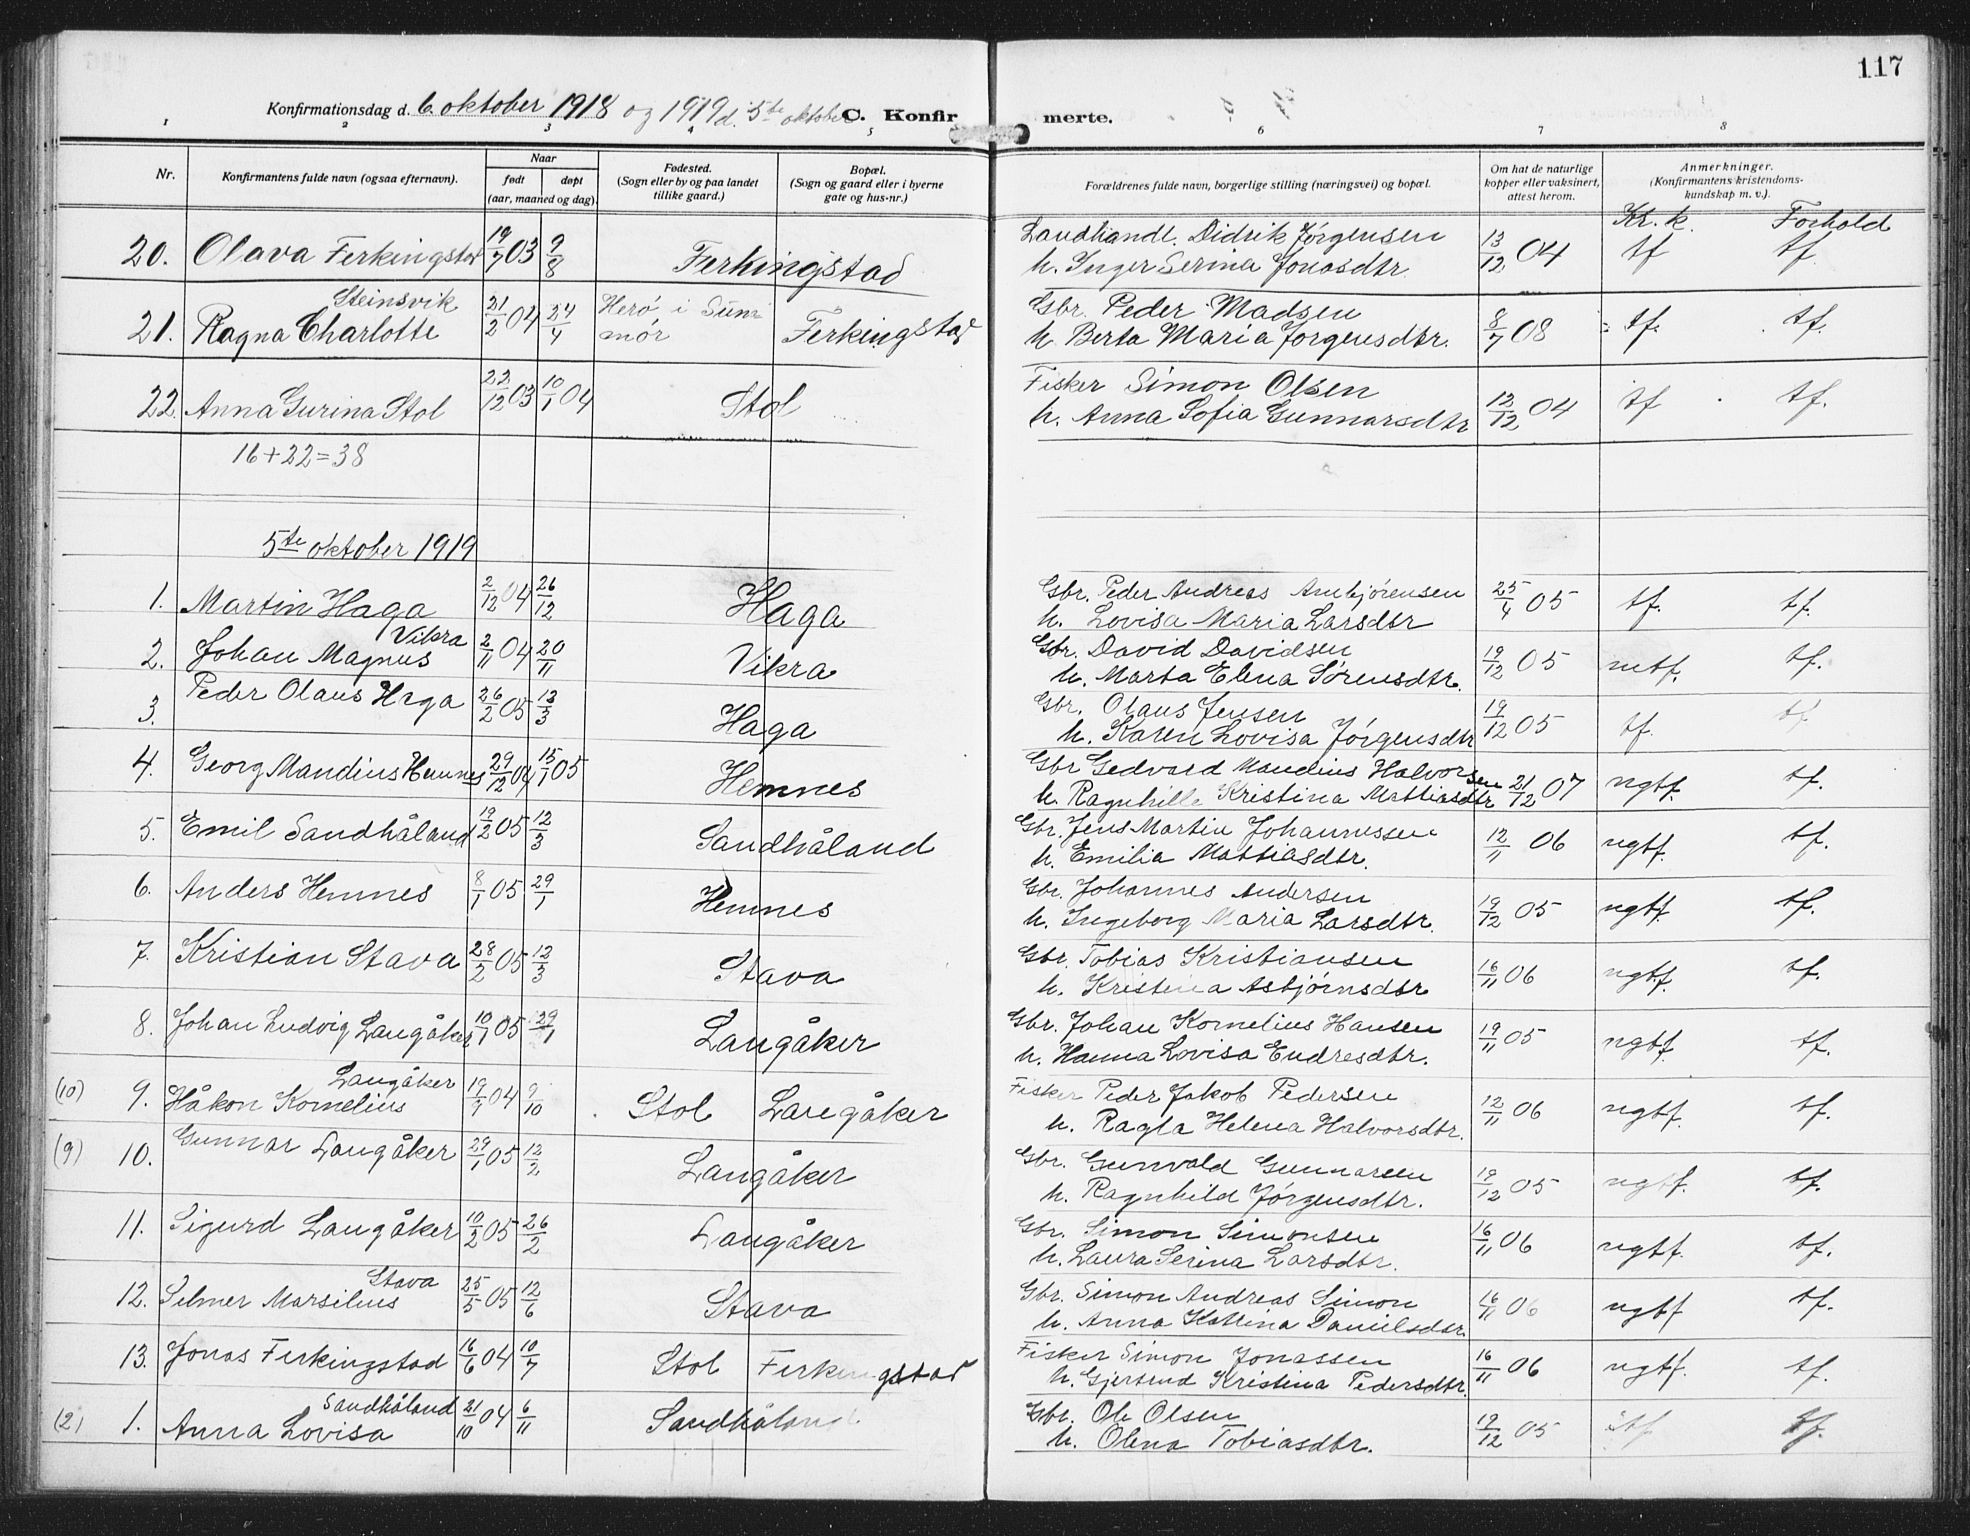 117
Konfirmationsdag d. 6 oktober 1918 og 1919 d. 5te oktober C. Konfirmerte.
1 2 3 4 5 6 7 8
Nr. Konfirmantens fulde navn (ogsaa efternavn). Naar født døpt (aar, maaned og dag). Fødested. (Sogn eller by og paa landet tillike gaard.) Bopæl. (Sogn og gaard eller i byerne gate og hus-nr.) Forældrenes fulde navn, borgerlige stilling (næringsvei) og bopæl. Om hat de naturlige kopper eller vaksinert, attest herom. Anmerkninger. (Konfirmantens kristendomskundskap m. v.).
Kr. k. Forhold
20. Olava Ferkingstad 19/7 03 9/8 Ferkingstad Landhandl. Didrik Jørgensen 13/12 04 tf tf.
h. Inger Serina Jonasdtr.
Steinsvik
21. Ragna Charlotte 21/2 04 24/4 Herø i Sunmør Ferkingstad Gbr. Peder Madsen 8/7 08 tf. tf.
h. Berta Maria Jørgensdtr.
22. Anna Gurina Stol 22/12 03 10/1 04 Stol Fisker Simon Olsen 12/12 04 tf tf.
h. Anna Sofia Gunnarsdtr
16+22=38
5te oktober 1919
1. Martin Haga 2/12 04 26/12 Haga Gbr. Peder Andreas Ambjørensen 25/4 05 tf. tf.
h. Lovisa Maria Larsdtr
Vikra
2. Johan Magnus 2/11 04 20/11 Vikra Gbr. David Davidsen 19/12 05 mtf. tf.
h. Marta Elena Sørensdtr.
3. Peder Olaus Haga 26/2 05 12/3 Haga Gbr. Olaus Jensen 19/12 05 tf. tf
h. Karen Lovisa Jørgensdtr
4. Georg Mandius Hemnes 29/12 04 15/1 05 Hemnes Gbr Gedvard Mandius Halvorsen 21/12 07 ngtf. tf.
h. Ragnhille Kristina Mattiasdtr
5. Emil Sandhåland 19/2 05 12/3 Sandhåland Gbr. Jens Martin Johannessen 12/11 06 ngtf. tf.
h. Emilia Mattiasdtr.
6. Anders Hemnes 8/1 05 29/1 Hemnes Gbr. Johannes Andersen 19/12 05 ngtf. tf.
h. Ingeborg Maria Larsdtr.
7. Kristian Stava 28/2 05 12/3 Stava Gbr. Tobias Kristiansen 16/11 06 ngtf. tf.
h. Kristena Asbjørnsdtr
8. Johan Ludvig Langåker 10/1 05 29/1 Langåker Gbr. Johan Kornelius Hansen 19/11 05 ngtf. tf.
h. Hanna Lovisa Endresdtr.
Langåker
(10) 9. Håkon Kornelius 19/9 04 9/10 Stol Langåker Fisker Peder Jakob Pedersen 12/11 06 ngtf. tf.
h. Ragla Helena Halvorsdtr.
(9) 10. Gunnar Langåker 29/1 05 12/2 Langåker Gbr. Gunvald Gunnarsen 19/12 05 ngtf. tf.
h. Ragnhild Jørgensdtr.
11. Sigurd Langåker 10/2 05 26/2 Langåker Gbr. Simon Simonsen 16/11 06 ngtf. tf.
h. Laura Serina Larsdtr.
Stava
12. Selmer Marsilius 25/5 05 12/6 Stava Gbr. Simon Andreas Simon 16/11 06 ngtf tf.
h. Anna Katrina Danielsdtr
13. Jonas Ferkingstad 16/6 04 10/7 Stol Ferkingstad Fisker Simon Jonassen 16/11 06 ngtf. tf.
h. Gjertrud Kristina Pedersdtr.
Sandhåland
(2) 1. Anna Lovisa 21/10 04 6/11 Sandhåland Gbr. Ole Olsen 19/12 05 tf tf.
h. Olena Tobiasdtr.